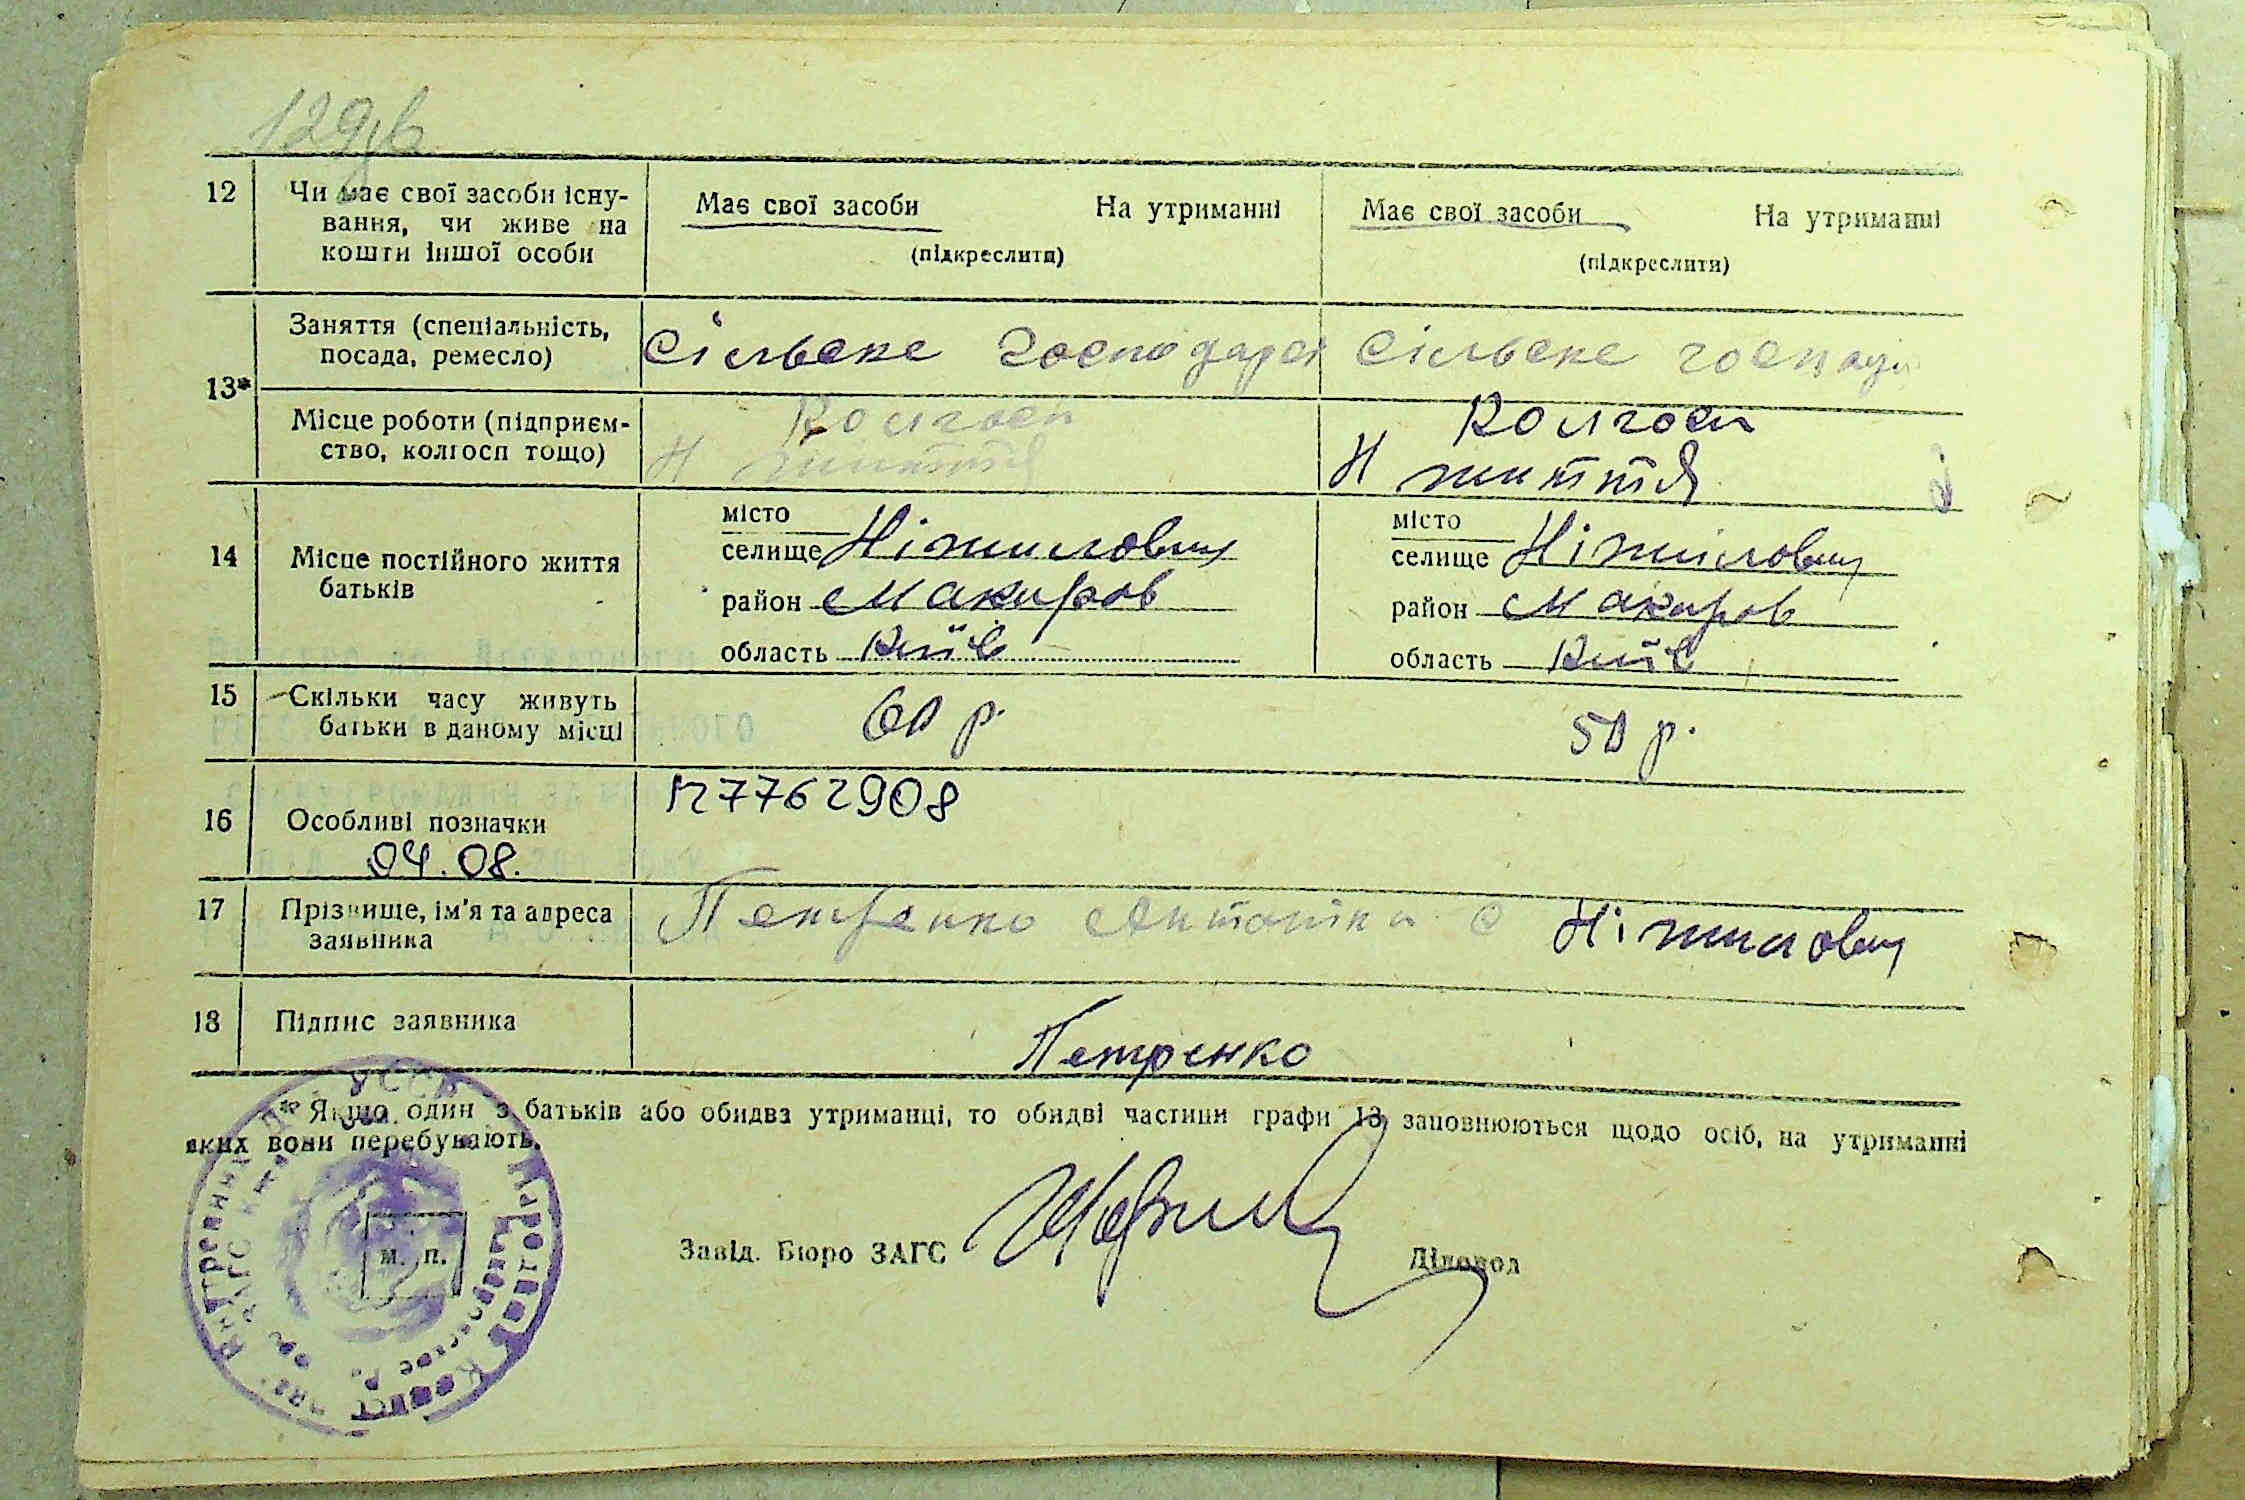 129
12 Чи має свої засоби існу- Має свої засоби На утриманні Має свої засоби На утриманні
вання, чи живе на
кошти іншої особи (підкреслити) (підкреслити)
13* Заняття (спеціальність, Сільске господарст Сільске господ
посада, ремесло)
Місце роботи (підприєм- Колгосп Колгосп
ство, колгосп тощо) Н життя Н життя
14 Місце постійного життя батьків
місто місто
селище Ніжиловичі селище Ніжиловичі
район Макаров район Макаров
область Київ область Київ
15 Скільки часу живуть 60 р. 50 р.
батьки в даному місці
16 Особливі позначки 7762908
04.08.
17 Прізвище, ім'я та адреса Петренко Антоніна с Ніжиловичі
заявника
18 Підпис заявника Петренко
* Якщо один з батьків або обидва утриманці, то обидві частини графи 13 заповнюються щодо осіб, на утриманні
яких вони перебувають.
м. п.
Завід. Бюро ЗАГС Діловод